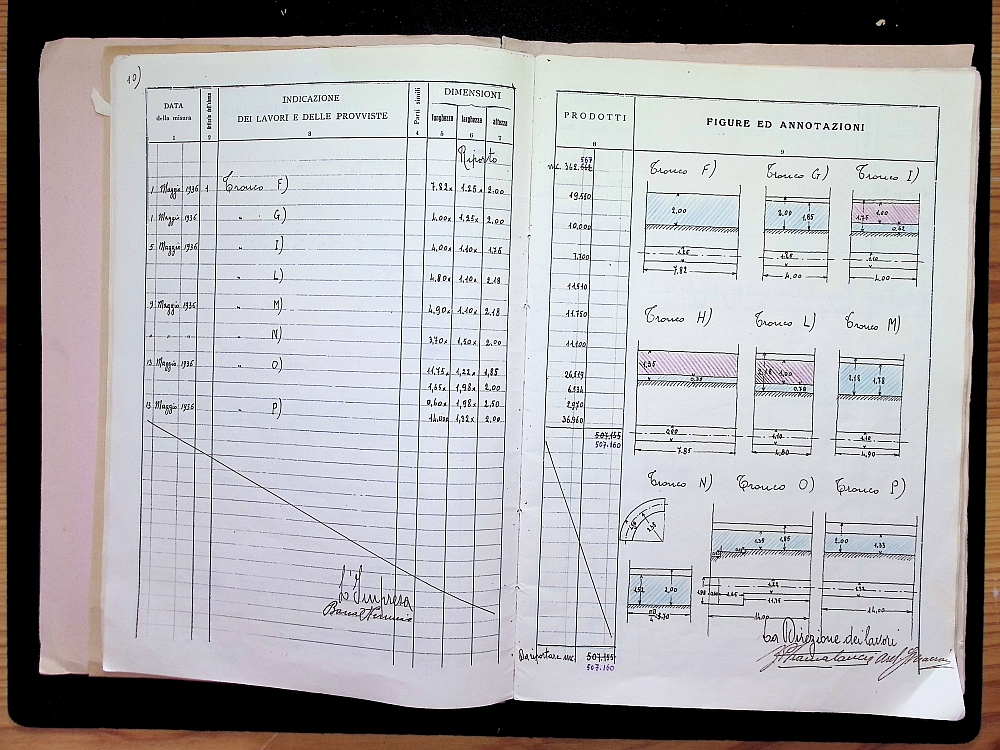 10)
DATA
della misura
INDICAZIONE
DEI LAVORI E DELLE PROVVISTE
Parti simili
DIMENSIONI
lunghezza
larghezza
altezza
1 2 3 4 5 6 7
Riporto
1 Maggio 1936 1 Tronco F) 7.82x 1.25x 2.00
1 Maggio 1936 " G) 4.00x 1.25x 2.00
5 Maggio 1936 " I) 4,00x 1.10x 1,75
" L) 4.80x 1.10x 2.18
9 Maggio 1936 " M) 4.90x 1.10x 2.18
" " " " N) 3,70x 1,50x 2.00
13 Maggio 1936 " O) 11,75x 1,22x 1,85
1,55x 1,98x 2.00
0,60x 1,98x 2,50
13 Maggio 1936 " P) 14.00x 1,32x 2,00
L'Impresa
PRODOTTI
FIGURE ED ANNOTAZIONI
8 9
567
mc. 362.
19.550
10,000
7.700
11.510
11.750
11.100
26.519
6.134
2.970
36.960
507.155
507.160
Da riportare mc. 507.155
507.160
Tronco F) Tronco G) Tronco I)
2,00 2,00 1,85 1,75 1,00
0,62
1,25 1,25 1,10
7,82 4,00 4,00
Tronco H) Tronco L) Tronco M)
1,35 2,18 1,00 2,18 1,78
0,38 0,78
0,88 1,10 1,10
7,85 4,80 4,90
Tronco N) Tronco O) Tronco P)
1,35 1,85 2,00 1,33
1,52 2,00
1,98 1,22 1,32
11,75
14,00 14,00
La Direzione dei lavori